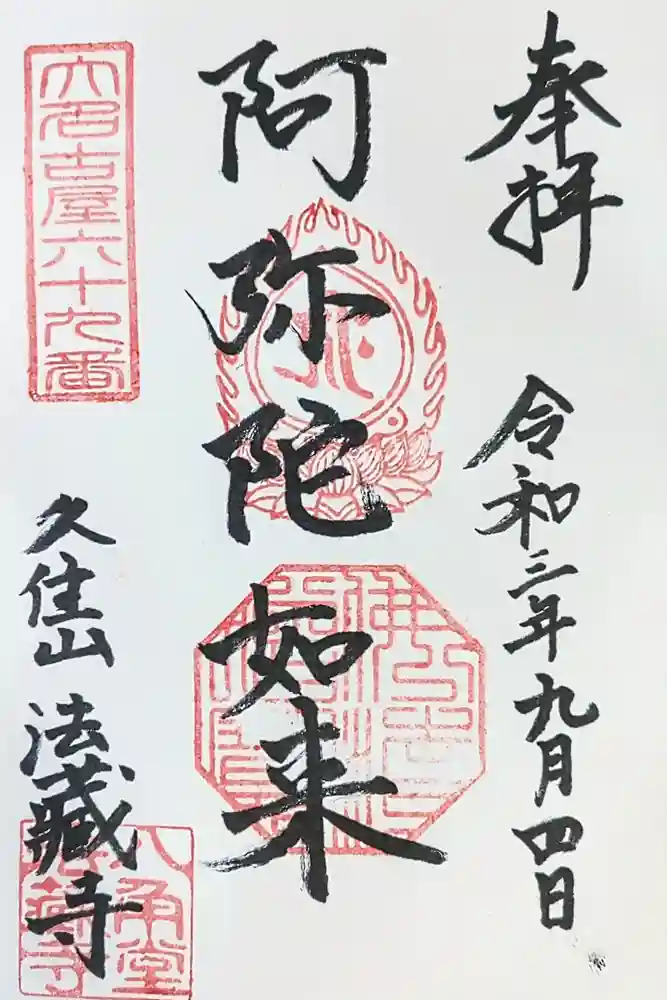 奉拝
令和三年九月四日
阿弥陀如来
大名古屋六十九番
久住山
法蔵寺
八角堂
法蔵寺